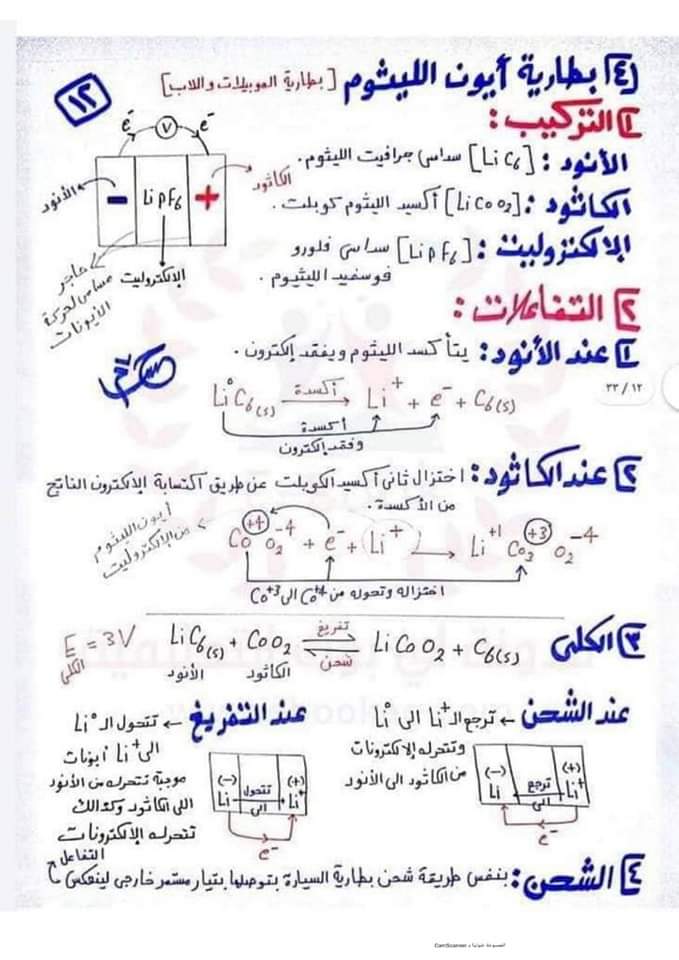 ١٢
(٤) بطارية أيون الليثيوم [بطارية الموبيلات واللاب]
١ التركيب:
الأنود: [LiC6] سداسى جرافيت الليثيوم.
الكاثود: [LiCoO2] أكسيد الليثيوم كوبلت.
الإلكتروليت: [LiPF6] سداسى فلورو
فوسفيد الليثيوم.
e⁻ V e⁻
الأنود - LiPF6 + الكاثود
الإلكتروليت
حاجز
مسامى لحركة
الأيونات
٢ التفاعلات:
١ عند الأنود: يتأكسد الليثيوم ويفقد إلكترون.
Li⁰C6(s) أكسدة → Li⁺ + e⁻ + C6(s)
أكسدة
وفقد إلكترون
١٢ / ٣٣
٢ عند الكاثود: اختزال ثانى أكسيد الكوبلت عن طريق اكتسابة الإلكترون الناتج
من الأكسدة.
أيون الليثيوم
من الإلكتروليت
Co⁺⁴O2⁻⁴ + e⁻ + Li⁺ → Li⁺¹ Co3⁺³ O2⁻⁴
اختزاله وتحوله من Co⁺⁴ الى Co⁺³
٣ الكلى
LiC6(s) + CoO2 تفريغ ⇌ شحن LiCoO2 + C6(s)
الأنود الكاثود
E = 3V
الكلى
عند الشحن ← ترجع الـ Li⁺ الى Li⁰
وتتحرك الإلكترونات
من الكاثود الى الأنود
(-) (+)
Li ترجع الى Li⁺
e⁻
عند التفريغ ← تتحول الـ Li⁰
الى Li⁺ أيونات
موجبة تتحرك من الأنود
اللى الكاثود وكذالك
تتحرك الإلكترونات
(-) (+)
Li تتحول الى Li⁺
e⁻
٤ الشحن: بنفس طريقة شحن بطارية السيارة بتوصلها بتيار مستمر خارجى لينعكس
التفاعل
CamScanner